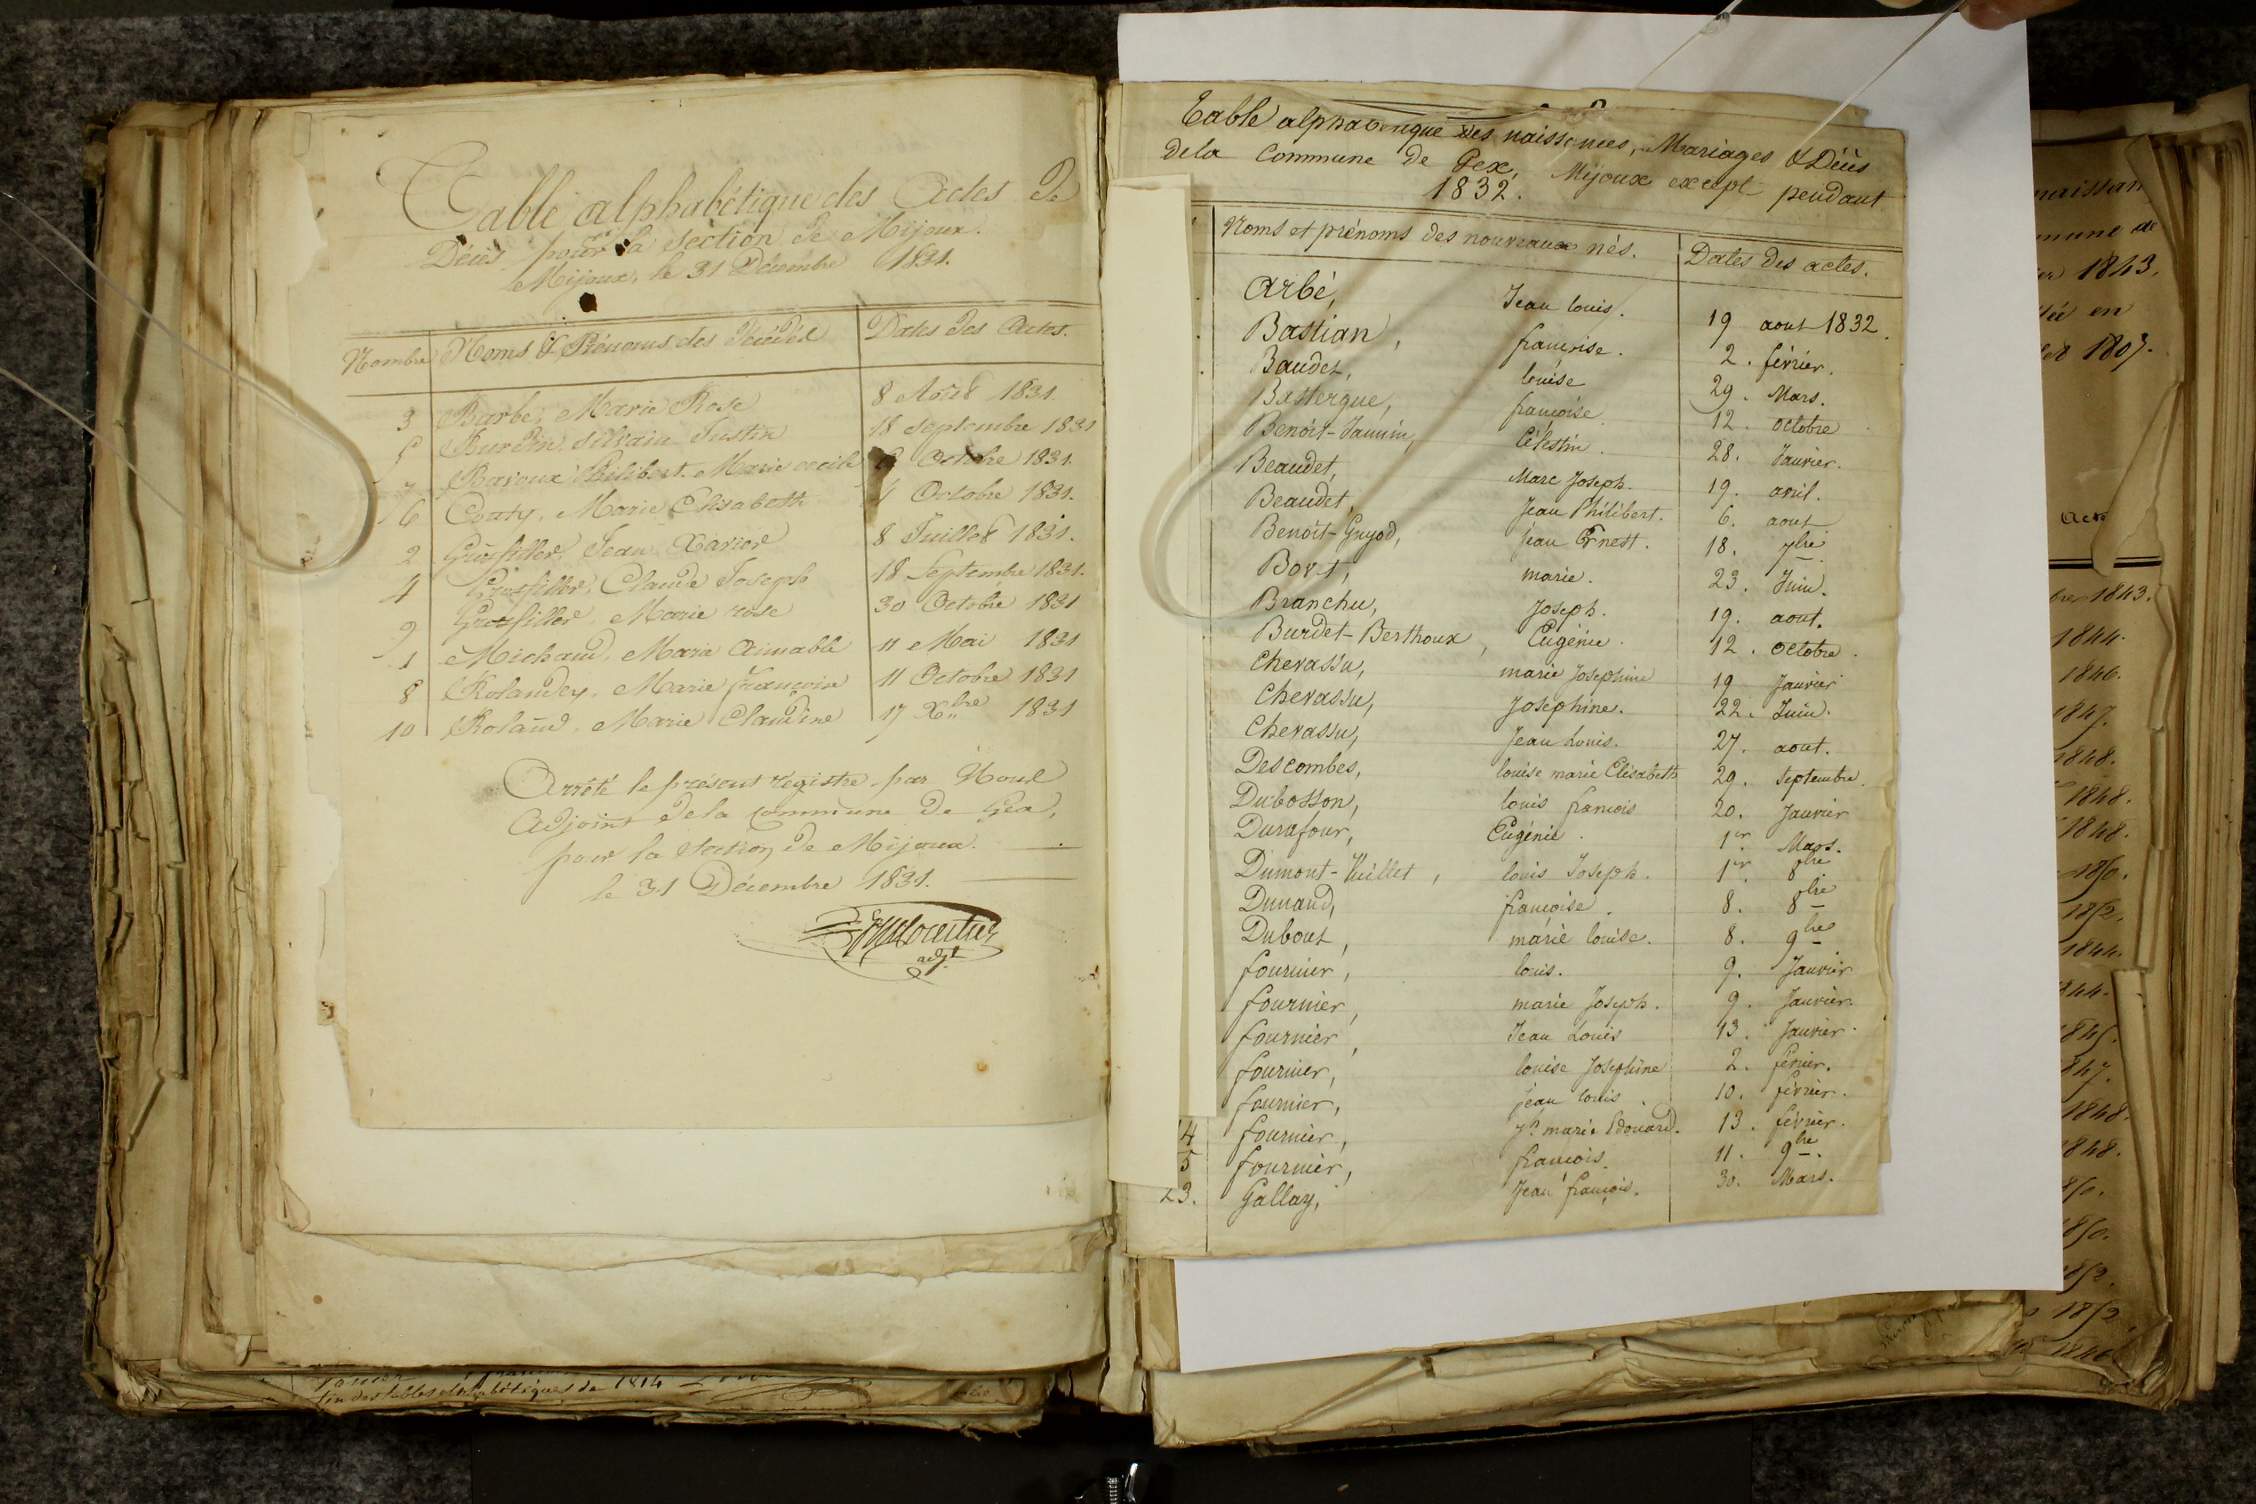 Table alphabétique des Actes de
Décès pour la Section de Mijoux.
Mijoux, le 31 Décembre 1831.
Nombre Noms & Prénoms des Décédés Dates des Actes.
3 Barbe, Marie Rose 8 Août 1831.
5 Burdin, Silvain Justin 18 septembre 1831
7 Philibert Marie cecile Octobre 1831.
6 Couty, Marie Elisabeth 4 Octobre 1831.
2 Grosfiller, Jean Xavier 8 Juillet 1831.
4 Grosfiller, Claude Joseph 18 Septembre 1831.
9 Grosfiller, Marie rose 30 Octobre 1831
1 Michaud, Marie Aimable 11 Mai 1831
8 Rolandey, Marie françoise 11 Octobre 1831
10 Roland, Marie Claudine 17 Xbre 1831
Arrêté le présent registre par Nous
Adjoint de la commune de Gex,
pour la Section de Mijoux.
le 31 Décembre 1831.
adjt
Table alphabétique des naissances, Mariages & Décès
de la Commune de Gex, Mijoux except pendant
1832.
Noms et prénoms des nouveaux nés. Dates des actes.
Arbé, Jean louis. 19 aout 1832.
Bastian, françoise. 2. février.
Baudet, louise 29. Mars.
Bastergue, françoise. 12. octobre
Benoit-Jannin, Célestin. 28. Janvier.
Beaudet, Marc Joseph. 19. avril.
Beaudet, Jean Philibert. 6. aout
Benoit-Guyod, jean Ernest. 18. 7bre
Boret, marie. 23. Juin.
Branchu, Joseph. 19. aout.
Burdet-Berthoux, Eugénie. 12. octobre.
Chevassu, marie Josephine 19 Janvier
Chevassu, Josephine. 22. Juin.
Chevassu, Jean Louis. 27. aout.
Descombes, louise marie Elisabeth 29. Septembre.
Dubosson, louis francois 20. Janvier
Durafour, Eugénie. 1er Mars.
Dumont-Vuillet, louis Joseph. 1er. 8bre
Dunand, françoise. 8. 8bre
Dubout, marie louise. 8. 9bre
fournier, louis. 9. Janvier
fournier, marie Joseph. 9. Janvier.
fournier, Jean Louis 13. Janvier.
fournier, louise Josephine 2. février.
fournier, jean louis. 10. février.
4 fournier, Jh marie Edouard. 13. février.
5 fournier, francois. 11. 9bre.
23. Gallay, Jean françois. 30. Mars.
1843.
1807.
1843.
1844.
1846.
1847.
1848.
1848.
1848.
1850.
1852.
1844.
1848.
1848.
1852.
fin des tables alphabétiques de 1814